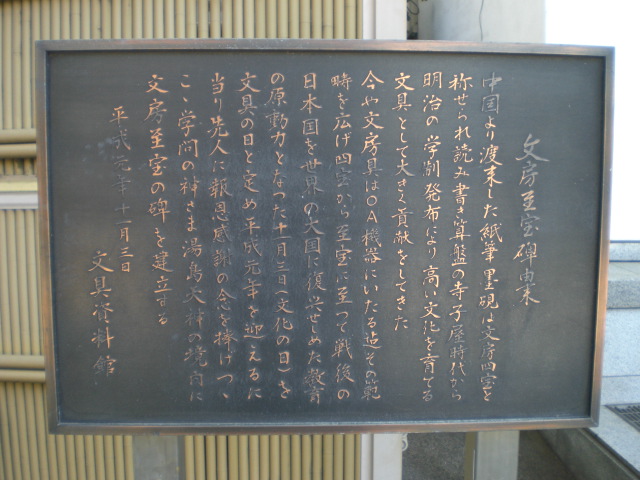 文房至宝碑由来
中国より渡来した紙筆墨硯は文房四宝と
称せられ読み書き算盤の寺子屋時代から
明治の学制発布により高い文化を育てる
文具として大きく貢献をしてきた
今や文房具はOA機器にいたる迠その範
疇を広げ四宝から至宝に至って戦後の
日本国を世界の大国に復興せしめた教育
の原動力となった十一月三日(文化の日)を
文具の日と定め平成元年を迎えるに
当り先人に報恩感謝の念を捧げつゝ
こゝ学問の神さま湯島天神の境内に
文房至宝の碑を建立する
平成元年十一月三日
文具資料館